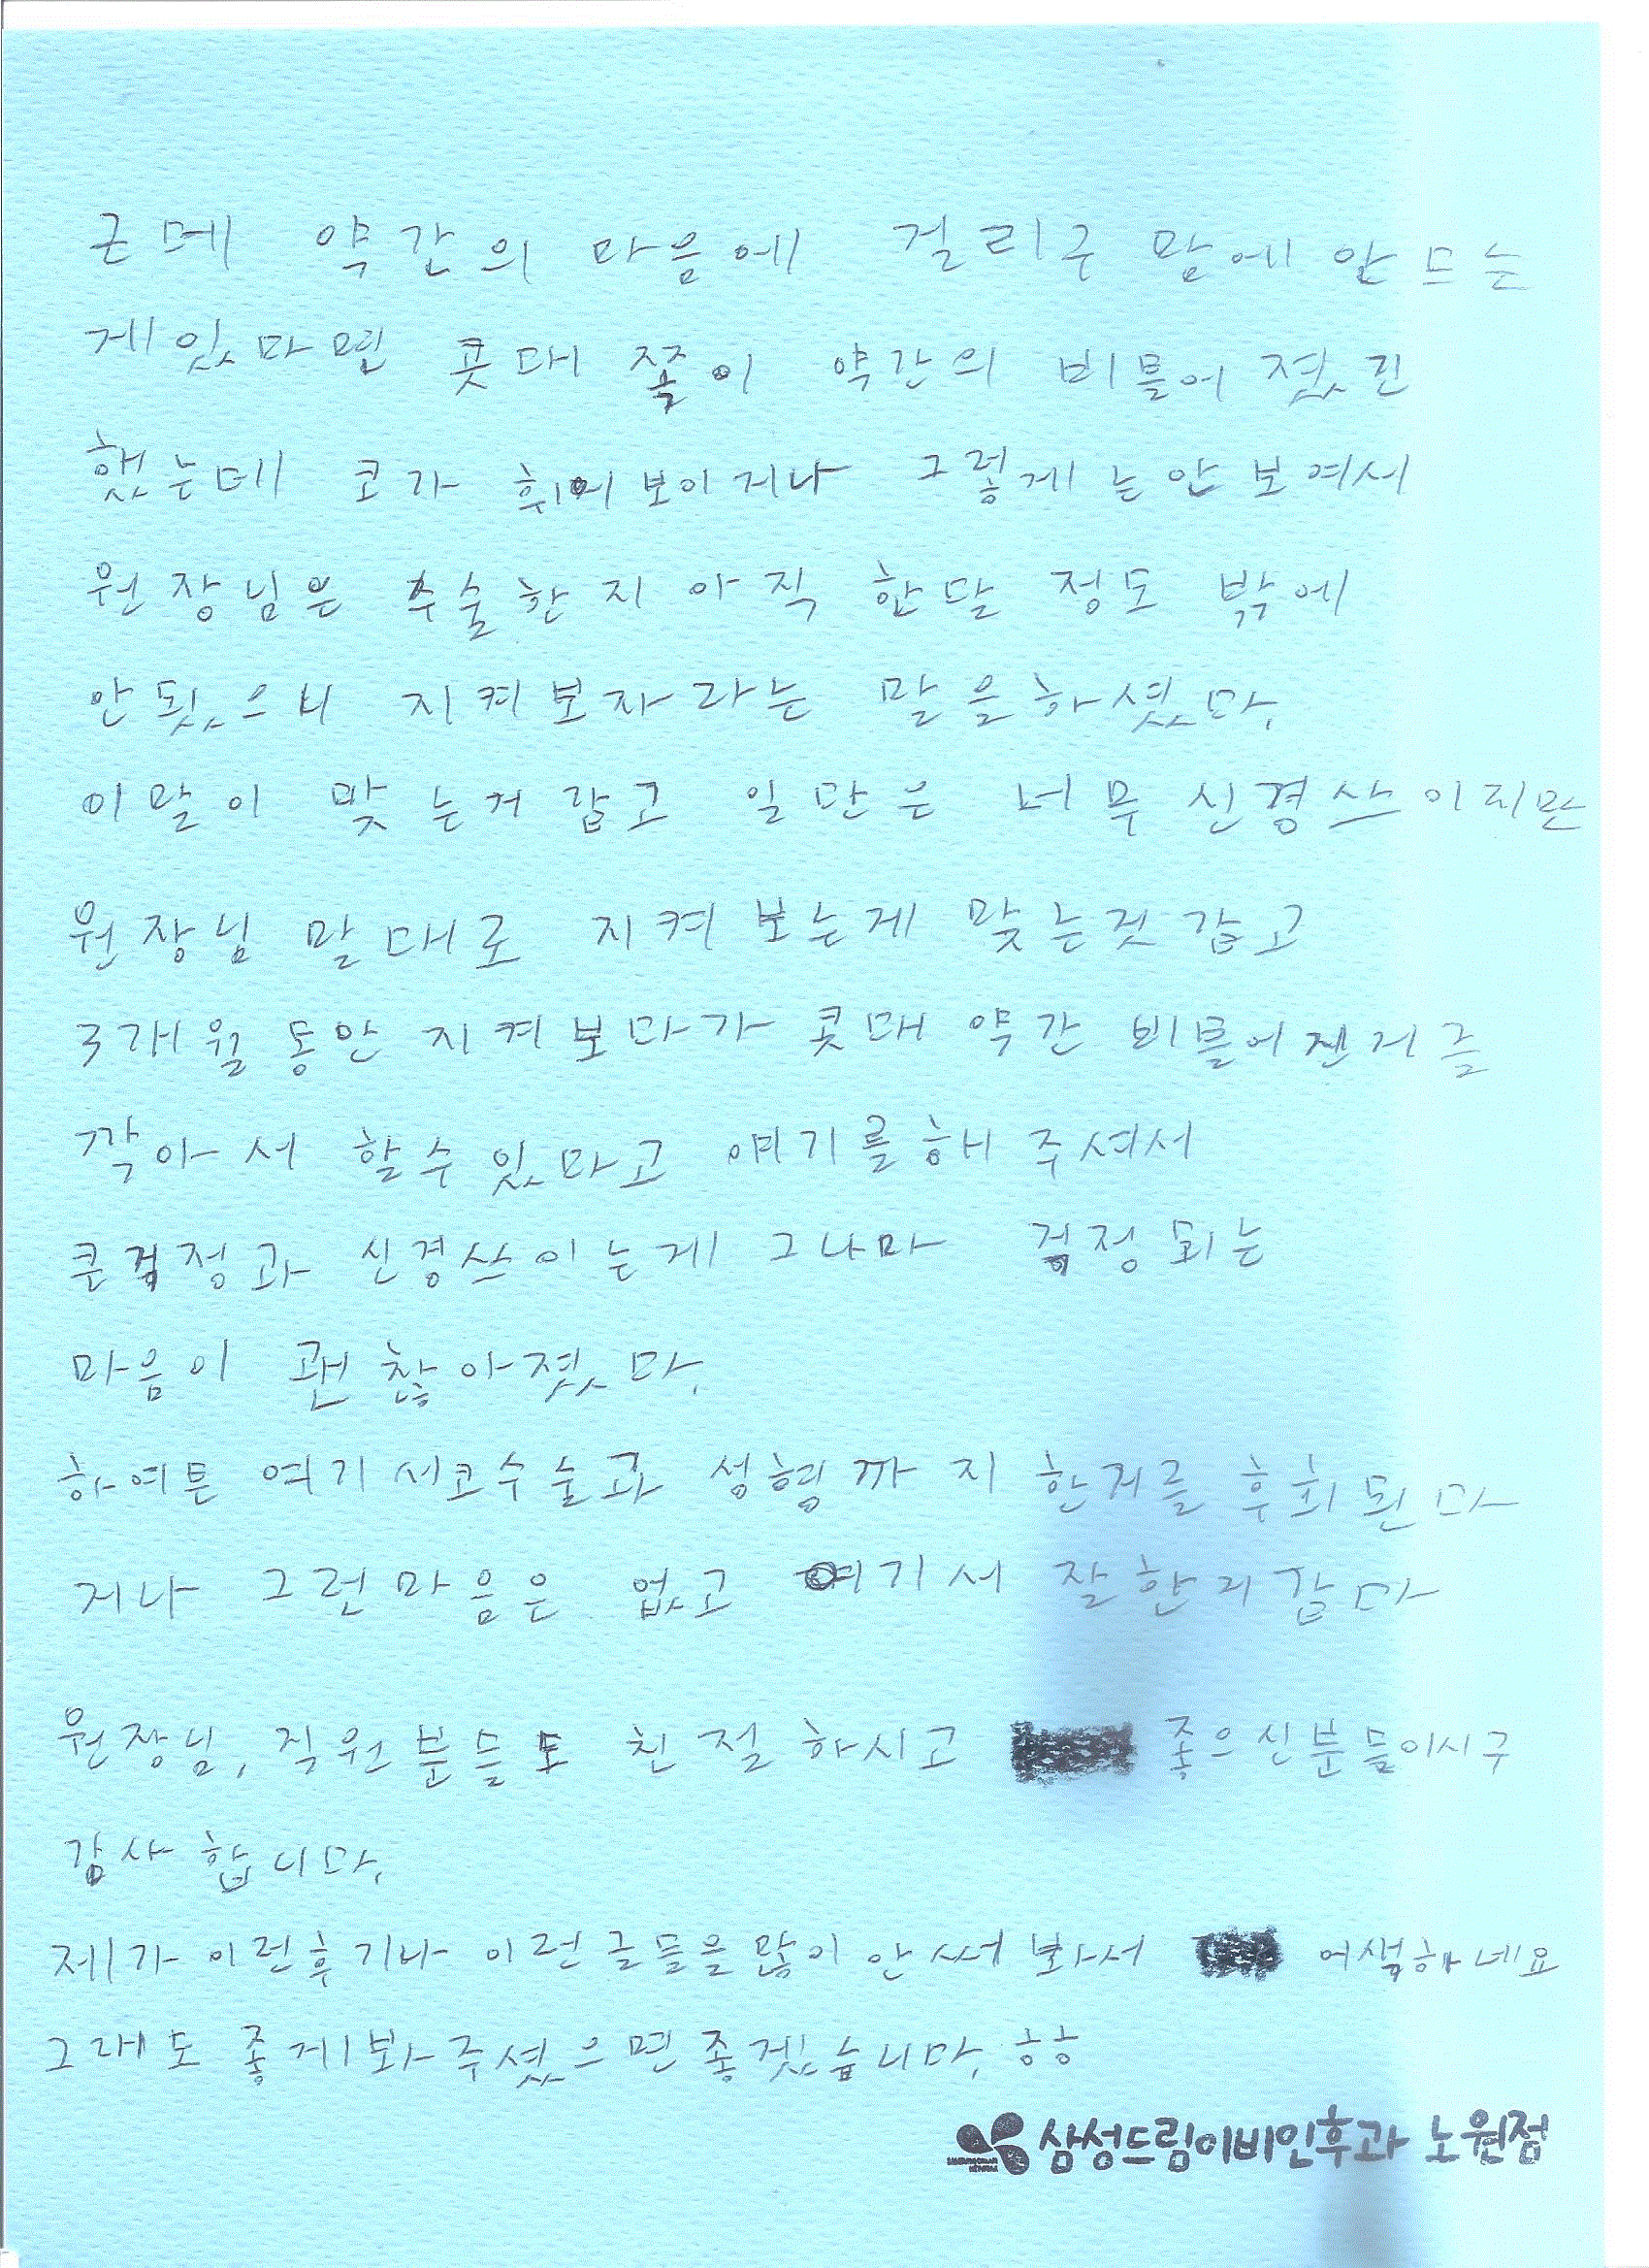 근데 약간의 마음에 걸리구 맘에 안드는
게있다면 콧대 쪽이 약간의 비틀어 졌긴
했는데 코가 휘어보이거나 그렇게는안보여서
원장님은 수술한지 아직 한달 정도 밖에
안됬으니 지켜보자라는 말을하셨다.
이말이 맞는거 같고 일단은 너무 신경쓰이지만
원장님 말대로 지켜 보는게 맞는것 같고
3개월 동안 지켜보다가 콧대 약간 비틀어진거를
깍아서 할수있다고 얘기를해 주셔서
큰걱정과 신경쓰이는게 그나마 걱정되는
마음이 괜찮아졌다.
하여튼 여기서코수술과 성형까지 한거를 후회된다
거나 그런마음은 없고 여기서 잘한거같다
원장님, 직원분들도 친절하시고 좋으신분들이시구
감사합니다.
제가 이런후기나 이런글들을많이 안써봐서 어색하네요
그래도 좋게봐주셨으면좋겠습니다. ㅎㅎ
삼성드림이비인후과 노원점